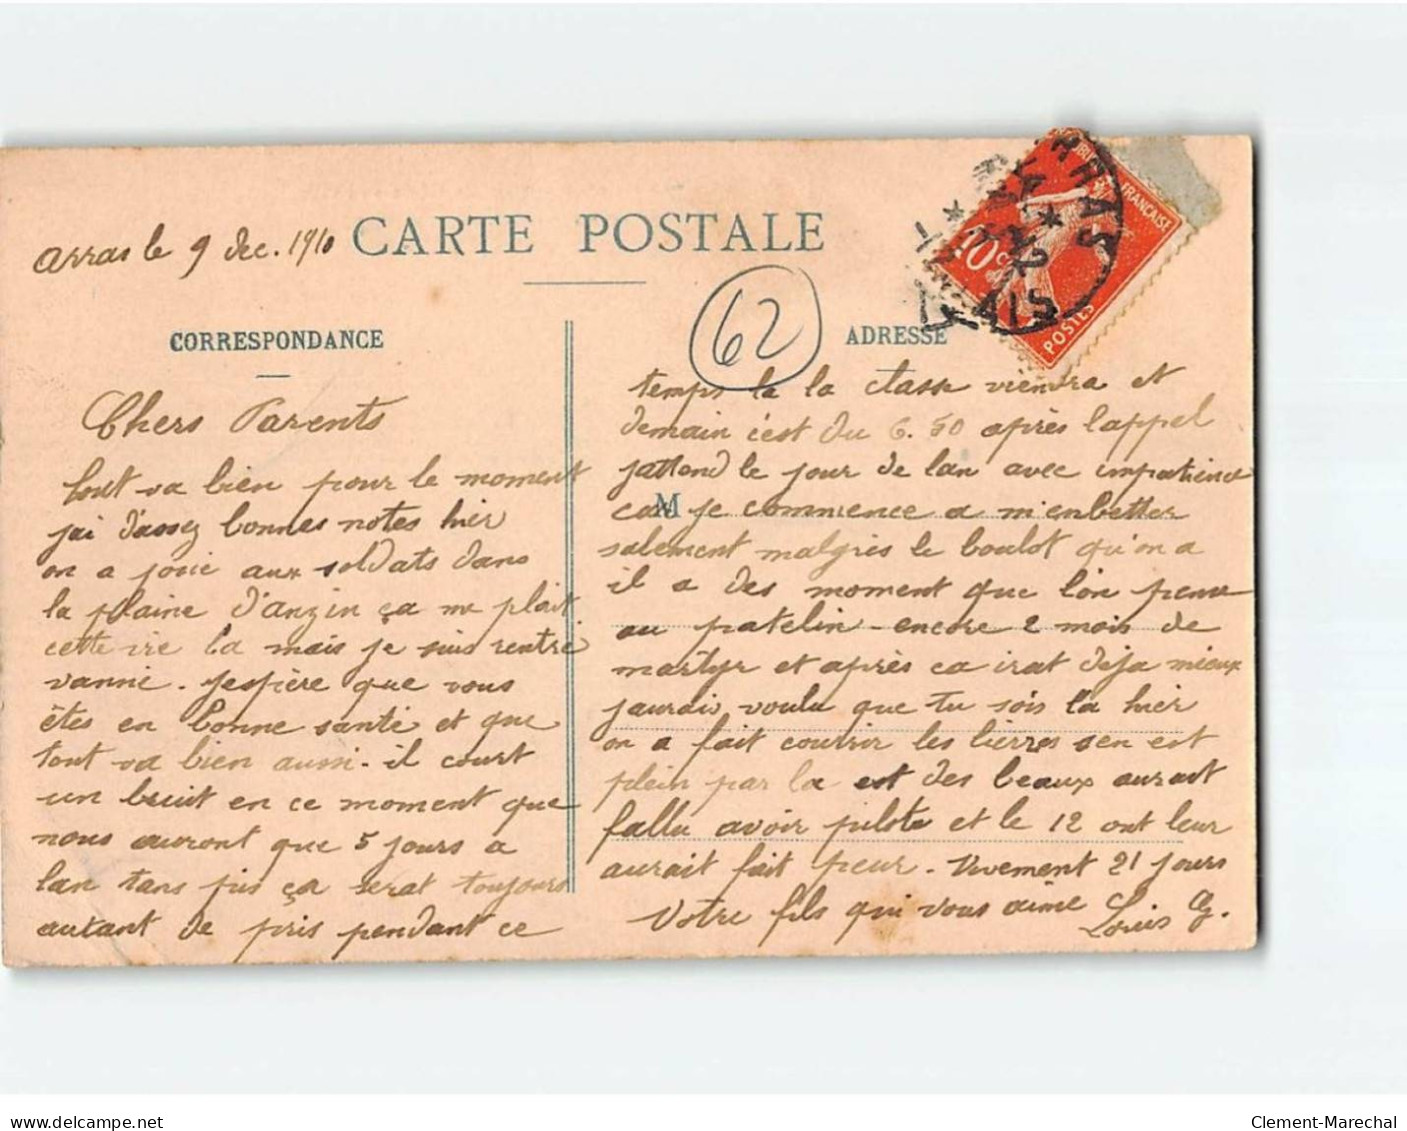 Arras le 9 dec. 1910
CARTE POSTALE
CORRESPONDANCE
62
ADRESSE
RÉPUBLIQUE FRANÇAISE
10c
POSTES
ARRAS
Chers Parents
tout va bien pour le moment
jai d'assez bonnes notes hier
on a joué aux soldats dans
la plaine d'anzin ça me plait
cette vie la mais je suis rentré
vanné. Jespière que vous
êtes en bonne santé et que
tout va bien aussi. il court
un bruit en ce moment que
nous auront que 5 jours a
lan tans pis ça serat toujours
autant de pris pendant ce
temps la la classe viendra et
demain c'est du 6.50 après lappel
jattend le jour de lan avec impatience
M
car je commence a m'enbetter
salement malgrès le boulot qu'on a
il a des moment que l'on pense
au patelin - encore 2 mois de
martyr et après ca irat deja mieux
jaurais voulu que tu sois la hier
on a fait courrir les lierres sen est
plein par la est des beaux aurait
fallu avoir pilote et le 12 ont leur
aurait fait peur. Vivement 21 jours
Votre fils qui vous aime
Louis G.
Clement-Marechal